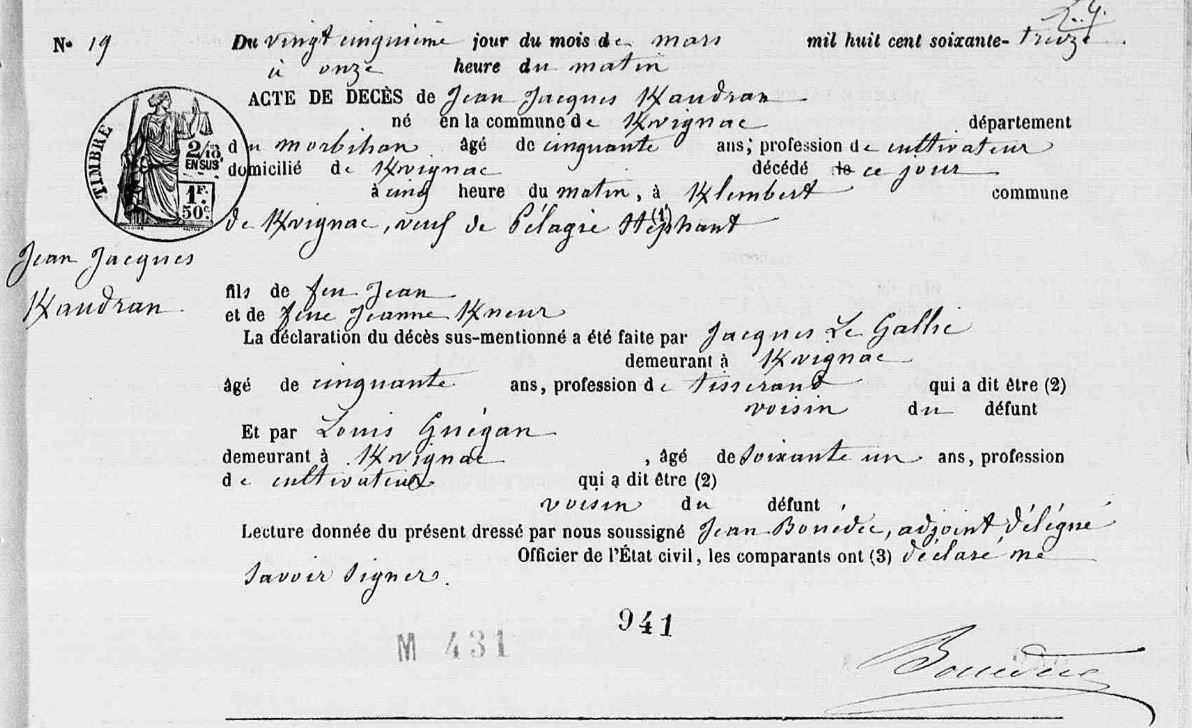 N° 19 Du vingt cinquième jour du mois de mars mil huit cent soixante-treize
à onze heure du matin
ACTE DE DÉCÈS de Jean Jacques Kaudran
né en la commune de Kvignac département
du morbihan âgé de cinquante ans, profession de cultivateur
domicilié de Kvignac décédé le ce jour
à cinq heure du matin, à Klembert commune
de Kvignac, veuf de Pélagie Stéphant (1)
TIMBRE
2/10
EN SUS
1F.
50c.
Jean Jacques
Kaudran
fils de feu Jean
et de feue Jeanne Kneur
La déclaration du décès sus-mentionné a été faite par Jacques Le Gallic
demeurant à Kvignac
âgé de cinquante ans, profession de tisserand qui a dit être (2)
voisin du défunt
Et par Louis Guégan
demeurant à Kvignac, âgé de soixante un ans, profession
de cultivateur qui a dit être (2)
voisin du défunt
Lecture donnée du présent dressé par nous soussigné Jean Bouédic, adjoint délégué
Officier de l'État civil, les comparants ont (3) déclaré ne
savoir signer.
941
M 431
Bouédic